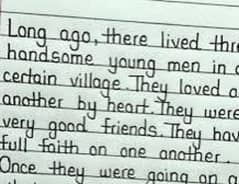 Long ago, there lived thre
handsome young men in a
certain village. They loved o
another by heart. They were
very good friends. They hav
full faith on one another.
Once they were going on a